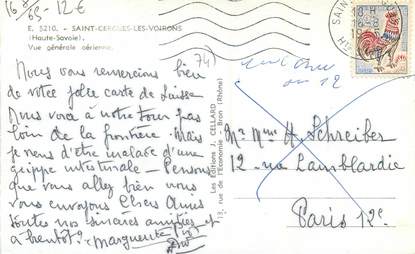 16/8/65 - 12€
E. 5210. - SAINT-CERGUES-LES-VOIRONS
(Haute-Savoie)
Vue générale aérienne.
(74)
Nous vous remercions bien
de votre jolie carte de Suisse
Nous voici à notre tour pas
loin de la frontière. Mais
je viens d'être malade d'une
grippe intestinale - Pensons
que vous allez bien nous
vous envoyons Chers Amis
toutes nos sincères amitiés et
à bientôt? - Marguerite
Les Editions J. CELLARD
13, rue de l'Economie - Bron (Rhône)
SAINT
inconnu
au 12
Mr Mme H. Schreiber
12 rue Lamblardie
Paris 12e